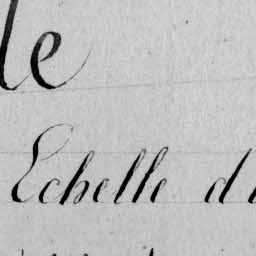 le
Echelle d